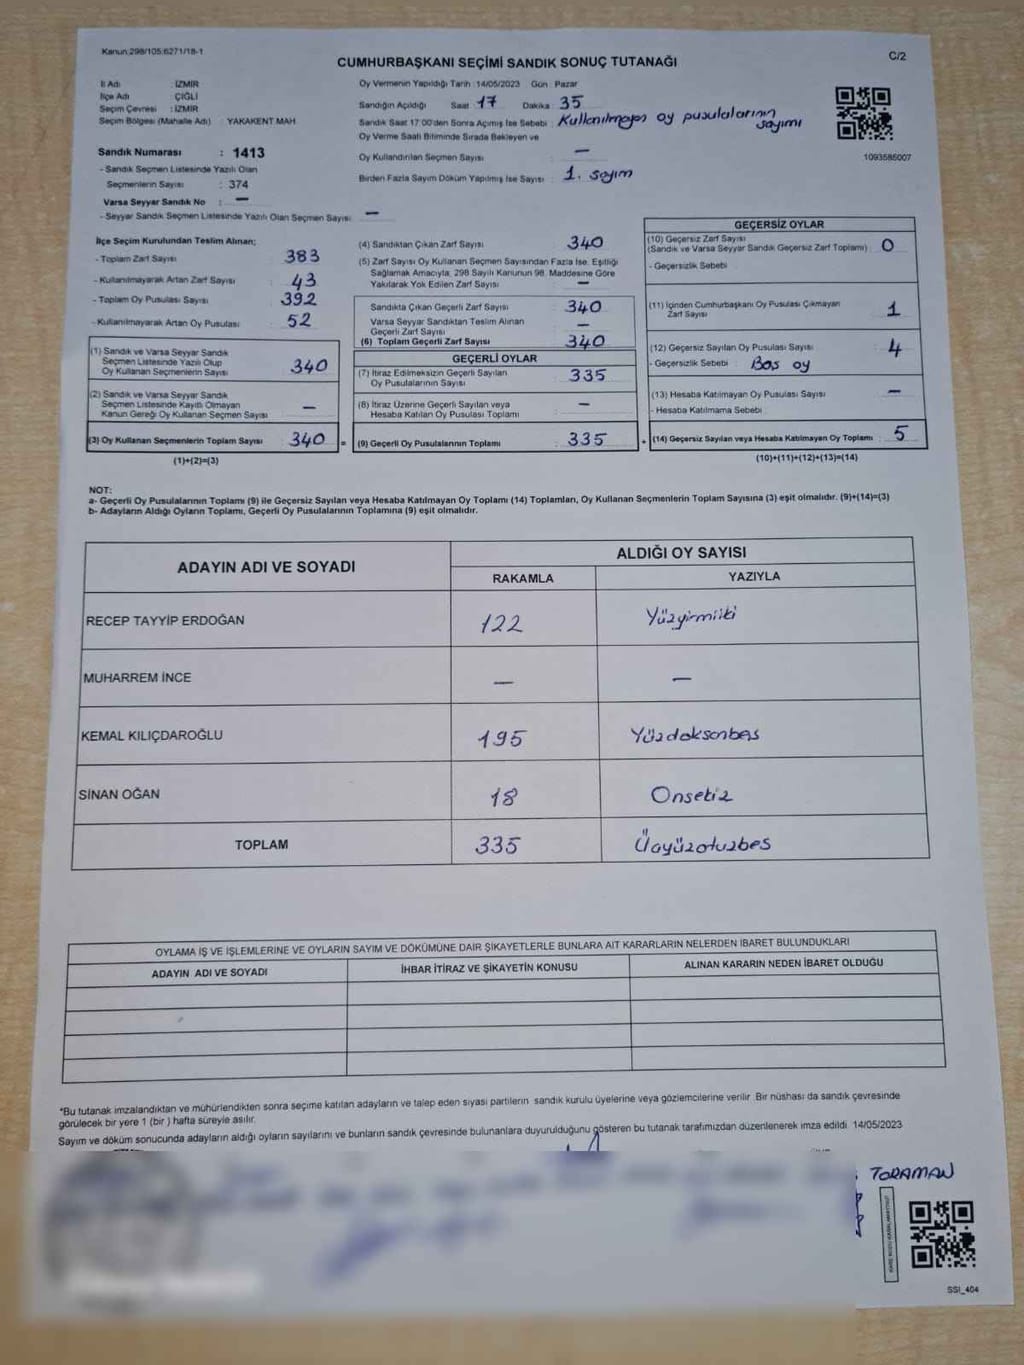 Kanun:298/105:6271/18-1
C/2
CUMHURBAŞKANI SEÇİMİ SANDIK SONUÇ TUTANAĞI
İl Adı : İZMİR
İlçe Adı : ÇİĞLİ
Seçim Çevresi : İZMİR
Seçim Bölgesi (Mahalle Adı) : YAKAKENT MAH.
Sandık Numarası : 1413
- Sandık Seçmen Listesinde Yazılı Olan
Seçmenlerin Sayısı : 374
Varsa Seyyar Sandık No : —
- Seyyar Sandık Seçmen Listesinde Yazılı Olan Seçmen Sayısı : —
Oy Vermenin Yapıldığı Tarih : 14/05/2023 Gün : Pazar
Sandığın Açıldığı Saat : 17 Dakika : 35
Sandık Saat 17:00'den Sonra Açımış İse Sebebi : Kullanılmayan oy pusulalarının sayımı
Oy Verme Saati Bitiminde Sırada Bekleyen ve
Oy Kullandırılan Seçmen Sayısı : —
Birden Fazla Sayım Döküm Yapılmış İse Sayısı : 1. sayım
1093585007
İlçe Seçim Kurulundan Teslim Alınan;
- Toplam Zarf Sayısı : 383
- Kullanılmayarak Artan Zarf Sayısı : 43
- Toplam Oy Pusulası Sayısı : 392
- Kullanılmayarak Artan Oy Pusulası : 52
(1) Sandık ve Varsa Seyyar Sandık
Seçmen Listesinde Yazılı Olup
Oy Kullanan Seçmenlerin Sayısı : 340
(2) Sandık ve Varsa Seyyar Sandık
Seçmen Listesinde Kayıtlı Olmayan
Kanun Gereği Oy Kullanan Seçmen Sayısı : —
(3) Oy Kullanan Seçmenlerin Toplam Sayısı : 340 =
(1)+(2)=(3)
(4) Sandıktan Çıkan Zarf Sayısı : 340
(5) Zarf Sayısı Oy Kullanan Seçmen Sayısından Fazla İse, Eşitliği
Sağlamak Amacıyla, 298 Sayılı Kanunun 98. Maddesine Göre
Yakılarak Yok Edilen Zarf Sayısı : —
Sandıkta Çıkan Geçerli Zarf Sayısı : 340
Varsa Seyyar Sandıktan Teslim Alınan
Geçerli Zarf Sayısı : —
(6) Toplam Geçerli Zarf Sayısı : 340
GEÇERLİ OYLAR
(7) İtiraz Edilmeksizin Geçerli Sayılan
Oy Pusulalarının Sayısı : 335
(8) İtiraz Üzerine Geçerli Sayılan veya
Hesaba Katılan Oy Pusulası Toplamı : —
(9) Geçerli Oy Pusulalarının Toplamı : 335 +
GEÇERSİZ OYLAR
(10) Geçersiz Zarf Sayısı
(Sandık ve Varsa Seyyar Sandık Geçersiz Zarf Toplamı) : 0
- Geçersizlik Sebebi :
(11) İçinden Cumhurbaşkanı Oy Pusulası Çıkmayan
Zarf Sayısı : 1
(12) Geçersiz Sayılan Oy Pusulası Sayısı : 4
- Geçersizlik Sebebi : Boş oy
(13) Hesaba Katılmayan Oy Pusulası Sayısı : —
- Hesaba Katılmama Sebebi :
(14) Geçersiz Sayılan veya Hesaba Katılmayan Oy Toplamı : 5
(10)+(11)+(12)+(13)=(14)
NOT:
a- Geçerli Oy Pusulalarının Toplamı (9) ile Geçersiz Sayılan veya Hesaba Katılmayan Oy Toplamı (14) Toplamları, Oy Kullanan Seçmenlerin Toplam Sayısına (3) eşit olmalıdır. (9)+(14)=(3)
b- Adayların Aldığı Oyların Toplamı, Geçerli Oy Pusulalarının Toplamına (9) eşit olmalıdır.
ADAYIN ADI VE SOYADI ALDIĞI OY SAYISI
RAKAMLA YAZIYLA
RECEP TAYYİP ERDOĞAN 122 Yüzyirmiiki
MUHARREM İNCE — —
KEMAL KILIÇDAROĞLU 195 Yüzdoksanbeş
SİNAN OĞAN 18 Onsekiz
TOPLAM 335 Üçyüzotuzbeş
OYLAMA İŞ VE İŞLEMLERİNE VE OYLARIN SAYIM VE DÖKÜMÜNE DAİR ŞİKAYETLERLE BUNLARA AİT KARARLARIN NELERDEN İBARET BULUNDUKLARI
ADAYIN ADI VE SOYADI İHBAR İTİRAZ VE ŞİKAYETİN KONUSU ALINAN KARARIN NEDEN İBARET OLDUĞU
*Bu tutanak imzalandıktan ve mühürlendikten sonra seçime katılan adayların ve talep eden siyasi partilerin sandık kurulu üyelerine veya gözlemcilerine verilir. Bir nüshası da sandık çevresinde
görülecek bir yere 1 (bir) hafta süreyle asılır.
Sayım ve döküm sonucunda adayların aldığı oyların sayılarını ve bunların sandık çevresinde bulunanlara duyurulduğunu gösteren bu tutanak tarafımızdan düzenlenerek imza edildi. 14/05/2023
TORAMAN
SSI_404